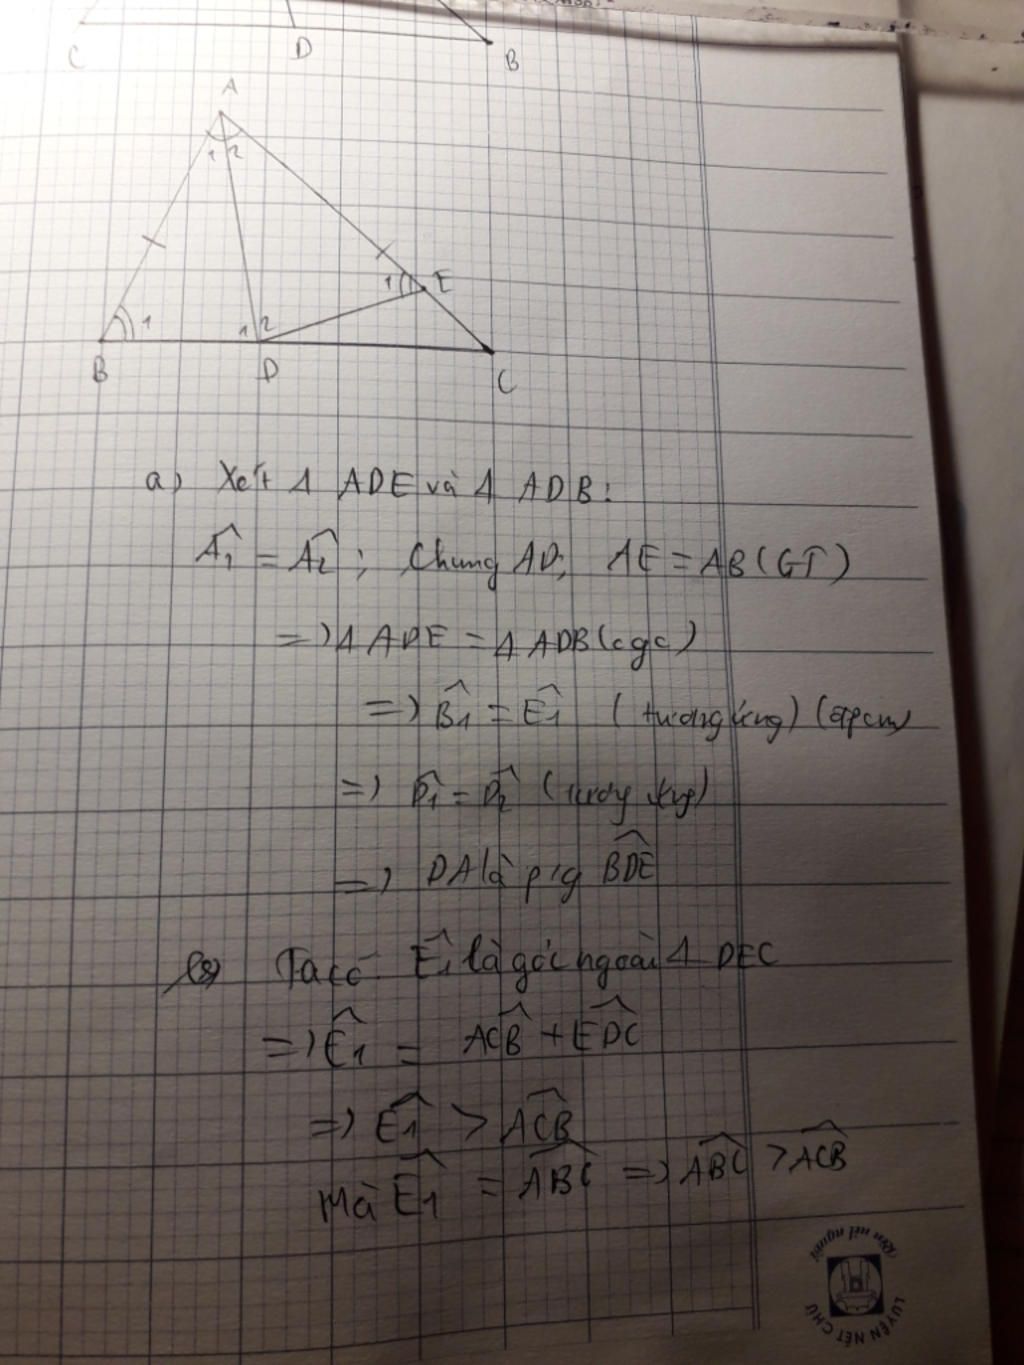 C D B
A
1 2
1 E
1 1 2
B D C
a) Xét Δ ADE và Δ ADB:
Â1 = Â2 ; Chung AD; AE = AB (GT)
=> Δ ADE = Δ ADB (cgc)
=> B̂1 = Ê1 (tương ứng) (đpcm)
=> D̂1 = D̂2 (tương ứng)
=> DA là p/g BDE^
b) Ta có Ê1 là góc ngoài Δ DEC
=> Ê1 = ACB^ + EDC^
=> Ê1 > ACB^
Mà Ê1 = ABC^ => ABC^ > ACB^
Rèn nết người
LUYỆN NÉT CHỮ